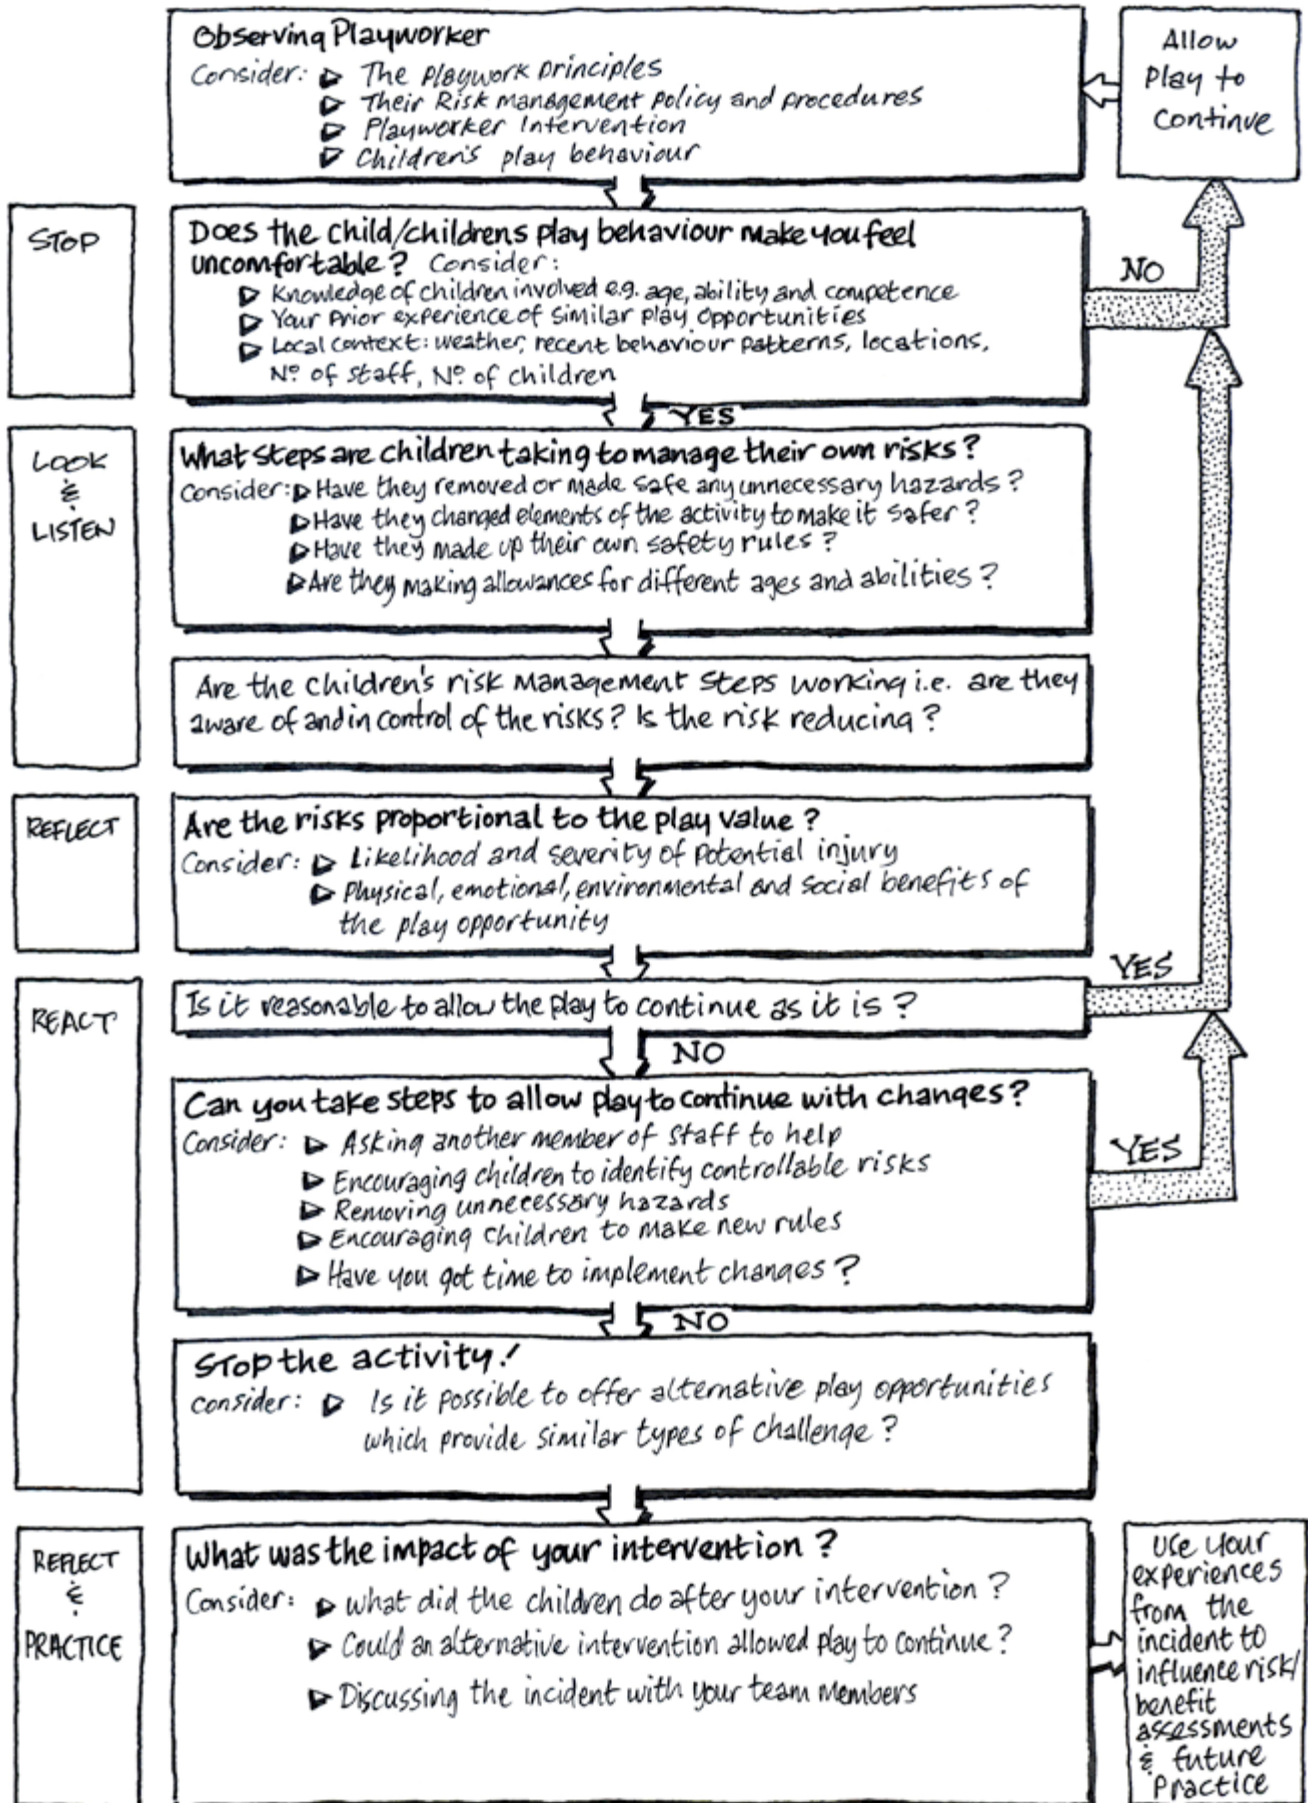 Observing Playworker
Consider: ▷ The playwork principles
▷ Their Risk management policy and procedures
▷ Playworker Intervention
▷ Children's play behaviour
Allow
Play to
Continue
STOP
Does the child/childrens play behaviour make you feel
uncomfortable? Consider:
▷ Knowledge of children involved e.g. age, ability and competence
▷ Your prior experience of similar play opportunities
▷ Local context: weather, recent behaviour patterns, locations,
Nº of staff, Nº of children
NO
YES
LOOK
&
LISTEN
What steps are children taking to manage their own risks?
Consider: ▷ Have they removed or made safe any unnecessary hazards?
▷ Have they changed elements of the activity to make it safer?
▷ Have they made up their own safety rules?
▷ Are they making allowances for different ages and abilities?
Are the children's risk management steps working i.e. are they
aware of and in control of the risks? Is the risk reducing?
REFLECT
Are the risks proportional to the play value?
Consider: ▷ Likelihood and severity of potential injury
▷ Physical, emotional, environmental and social benefits of
the play opportunity
REACT
Is it reasonable to allow the play to continue as it is?
YES
NO
Can you take steps to allow play to continue with changes?
Consider: ▷ Asking another member of staff to help
▷ Encouraging children to identify controllable risks
▷ Removing unnecessary hazards
▷ Encouraging children to make new rules
▷ Have you got time to implement changes?
YES
NO
STOP the activity!
consider: ▷ Is it possible to offer alternative play opportunities
which provide similar types of challenge?
REFLECT
&
PRACTICE
What was the impact of your intervention?
Consider: ▷ what did the children do after your intervention?
▷ Could an alternative intervention allowed play to continue?
▷ Discussing the incident with your team members
Use your
experiences
from the
incident to
influence risk/
benefit
assessments
& future
Practice